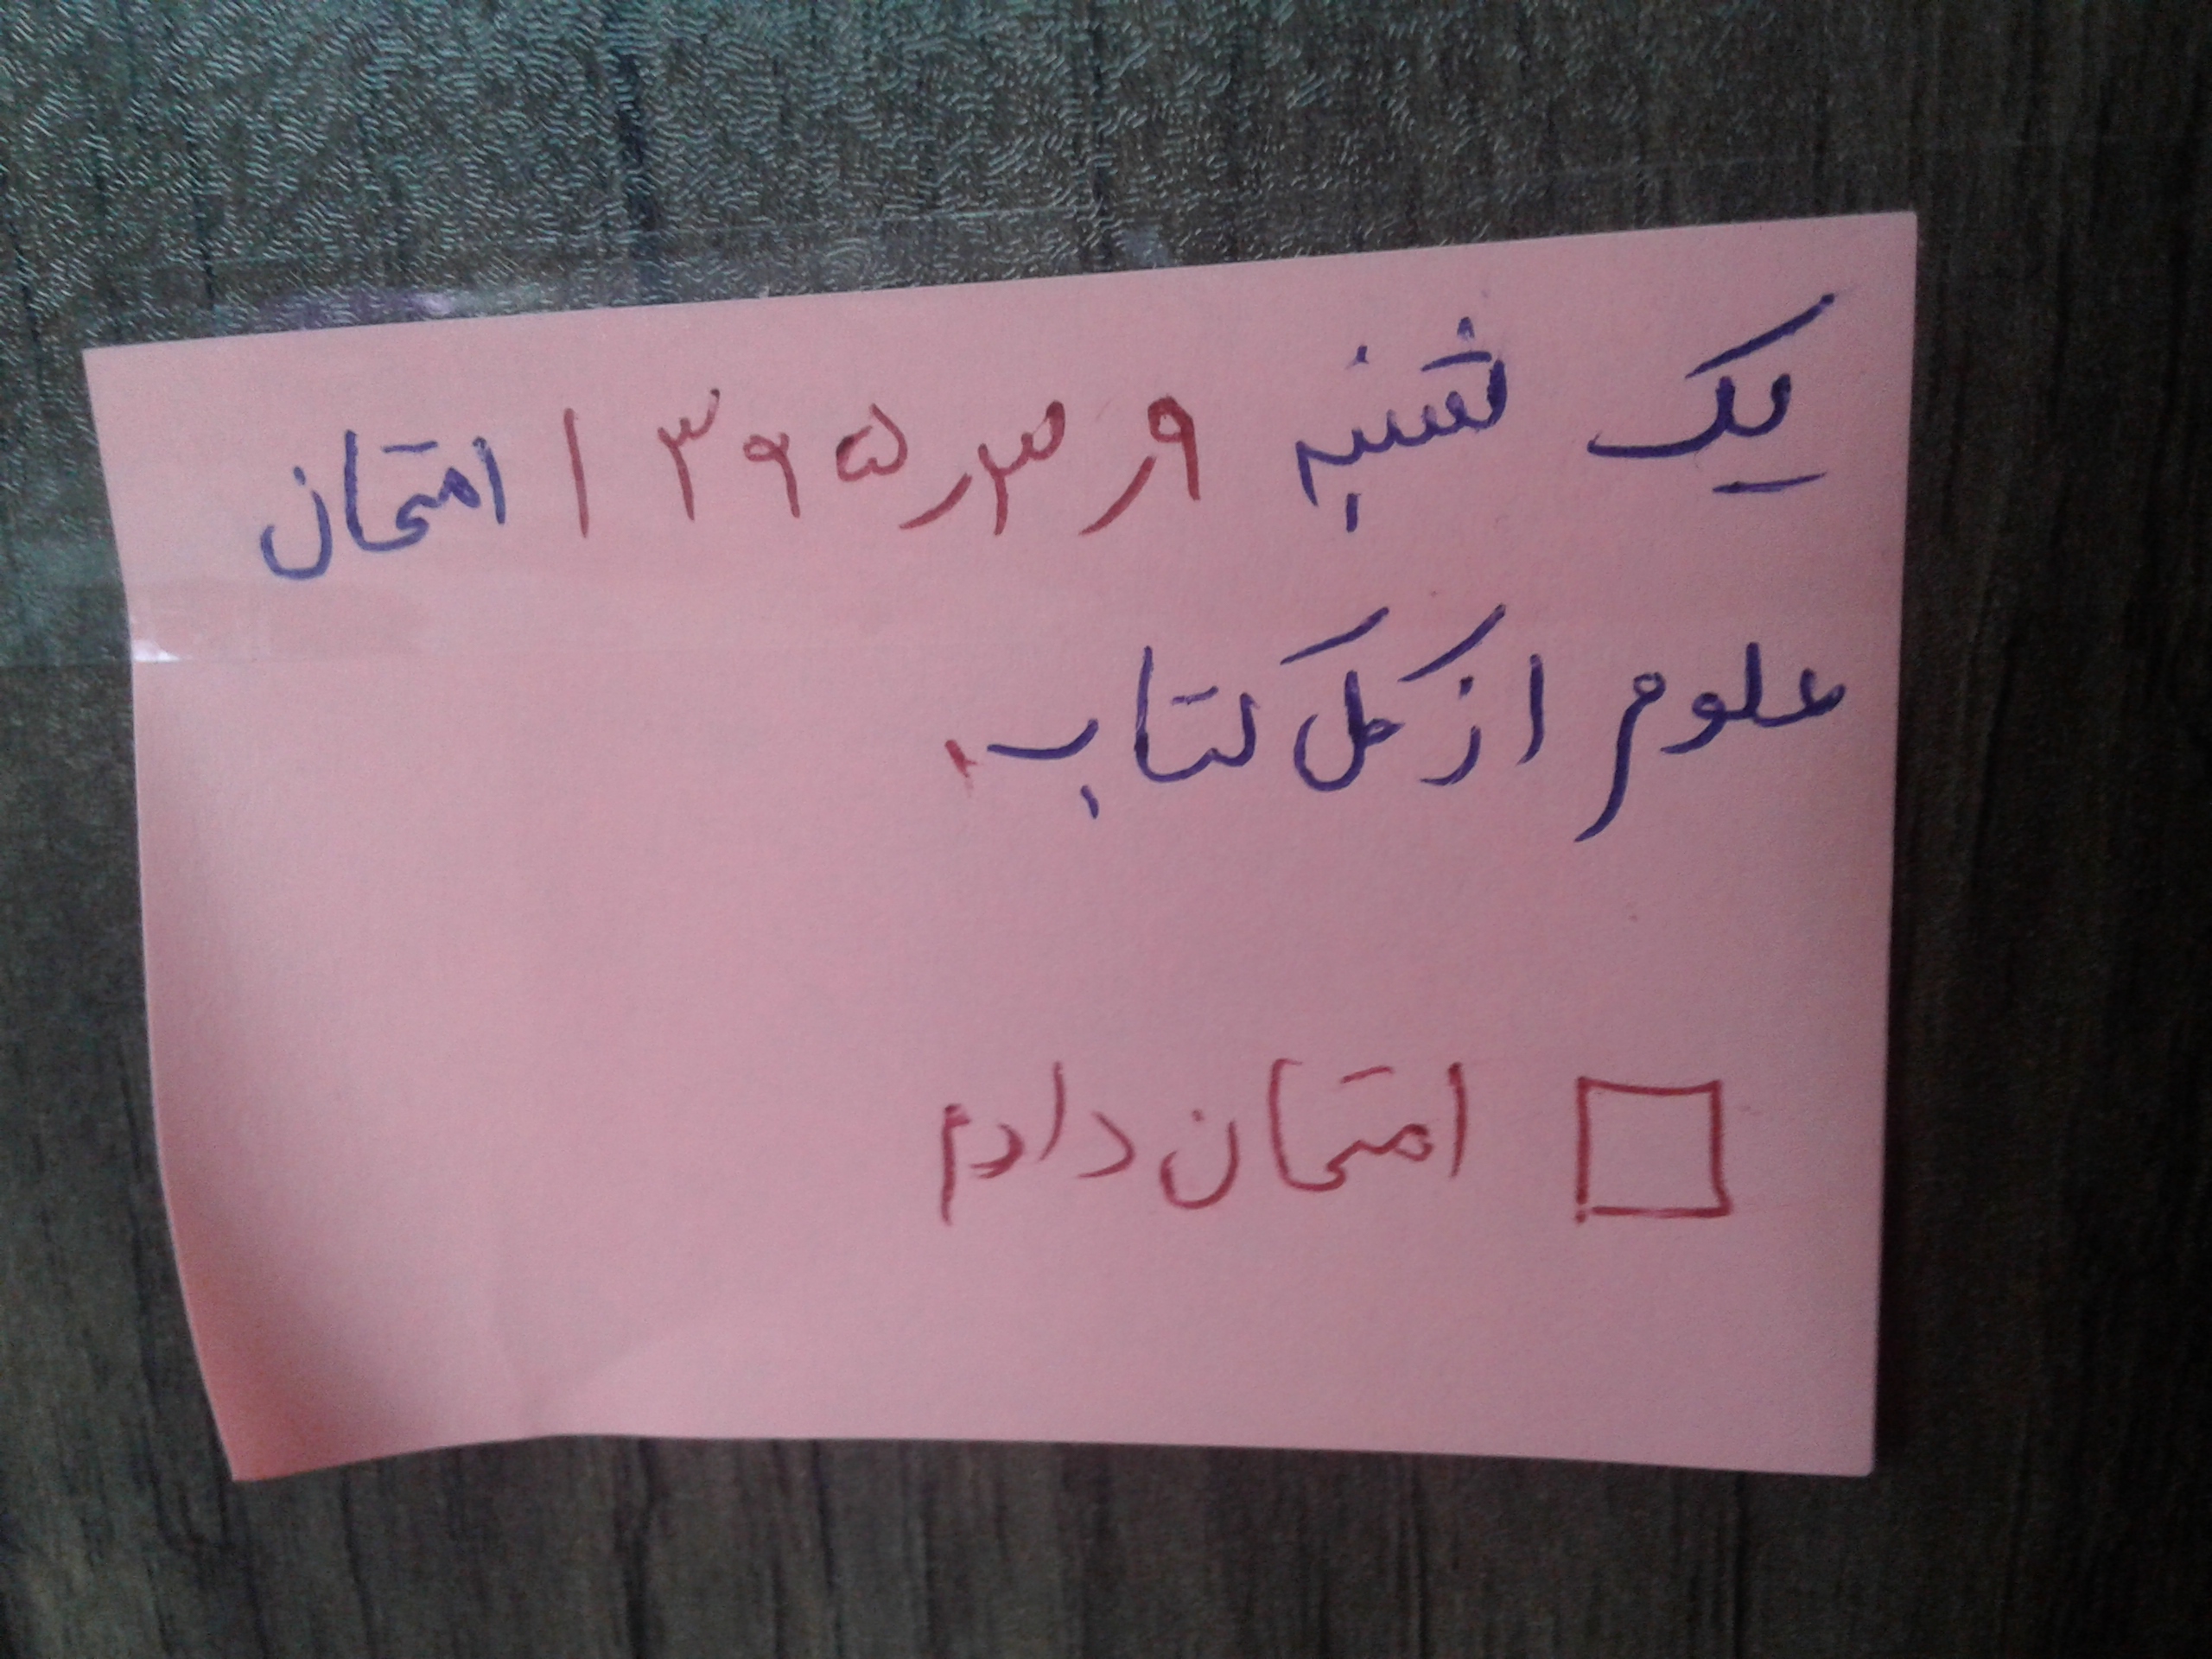 یک شنبه ۹ر۳ر۱۳۹۵ امتحان
علوم از کل کتاب.
□ امتحان دادم